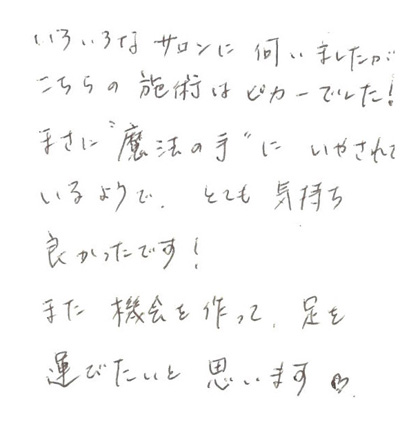 いろいろな サロンに 伺いましたが
こちらの 施術は ピカ一でした!
まさに"魔法の手"に いやされて
いるようで、 とても 気持ち
良かったです!
また 機会を 作って、 足を
運びたいと 思います♡